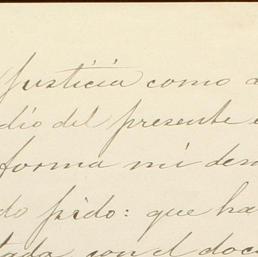 Justicia como
dio del presente
forma mi dem
do pido: que ha
tada con el docu